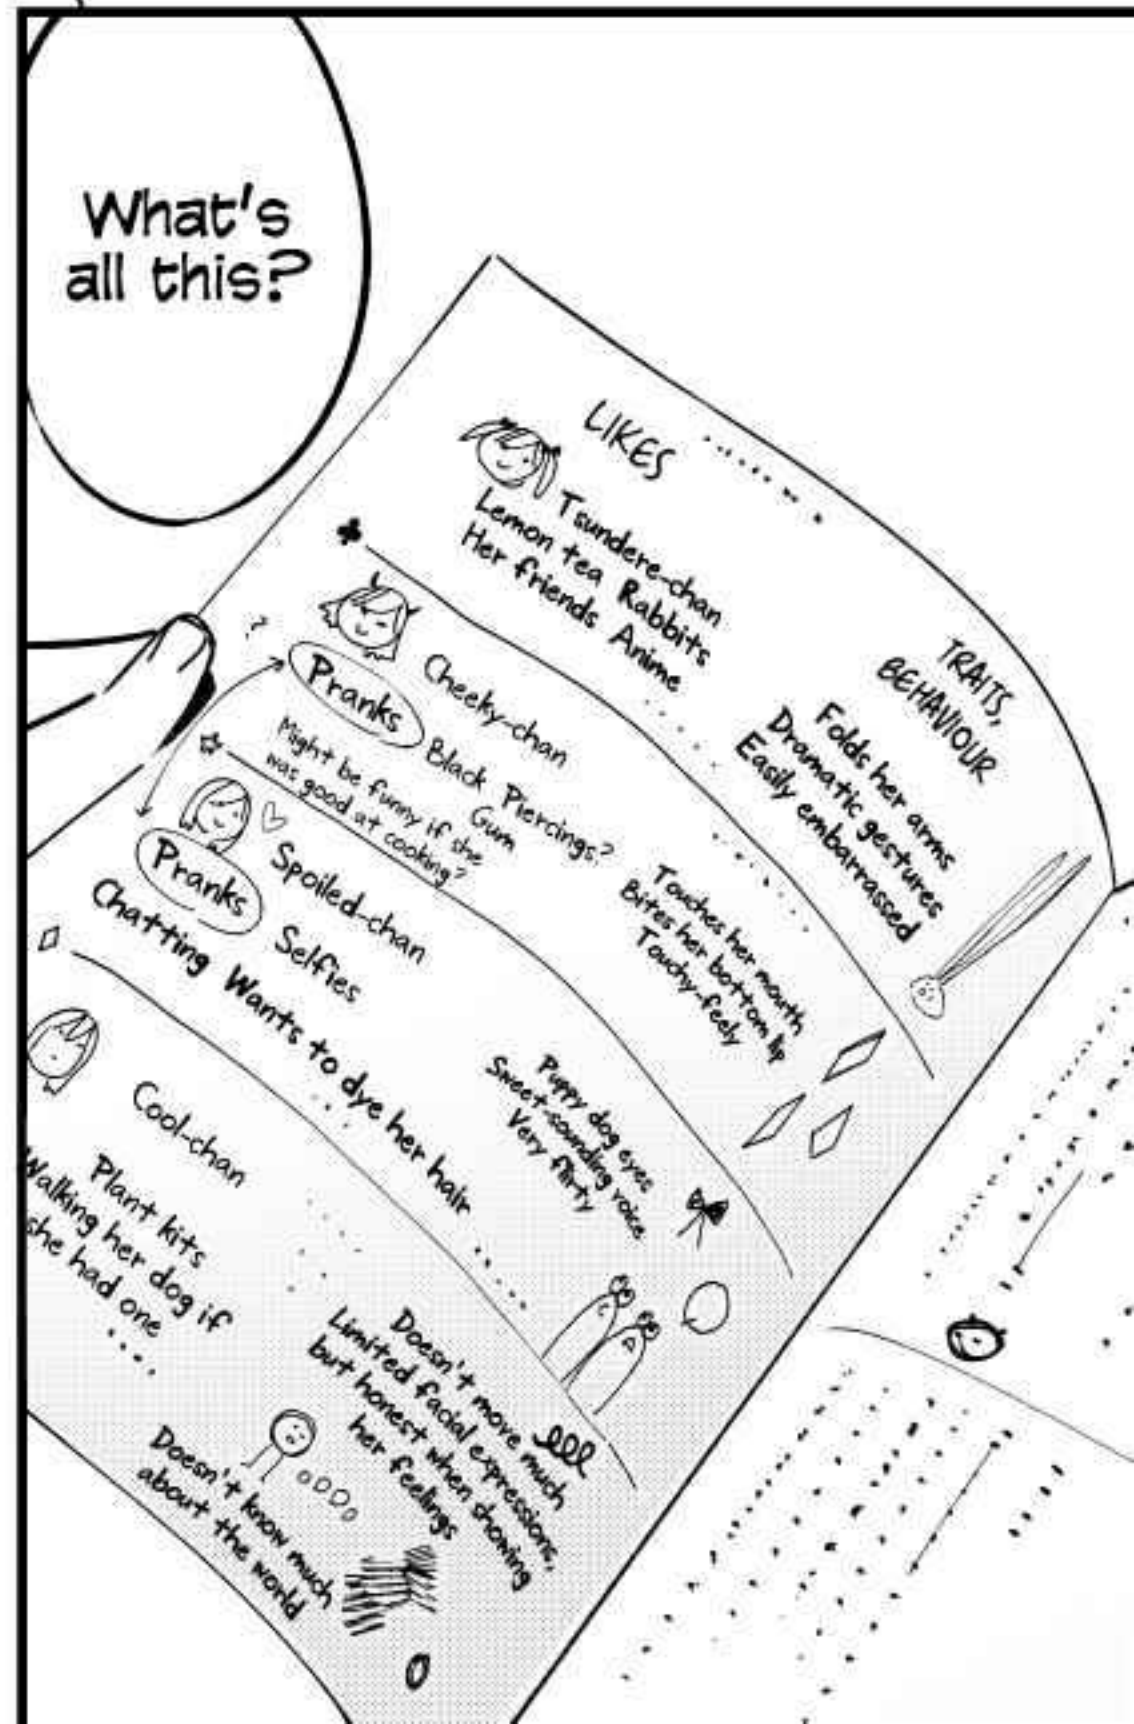 What's
all this?
LIKES
Tsundere-chan
Lemon tea Rabbits
Her friends Anime
TRAITS,
BEHAVIOUR
Folds her arms
Dramatic gestures
Easily embarrassed
Cheeky-chan
?
Pranks
Black Piercings?
Gum
Might be funny if she
was good at cooking?
Touches her mouth
Bites her bottom lip
Touchy-feely
Spoiled-chan
Pranks
Selfies
Chatting Wants to dye her hair
Puppy dog eyes
Sweet-sounding voice
Very flirty
Cool-chan
Plant kits
Walking her dog if
she had one
Doesn't move much
Limited facial expressions,
but honest when showing
her feelings
Doesn't know much
about the world